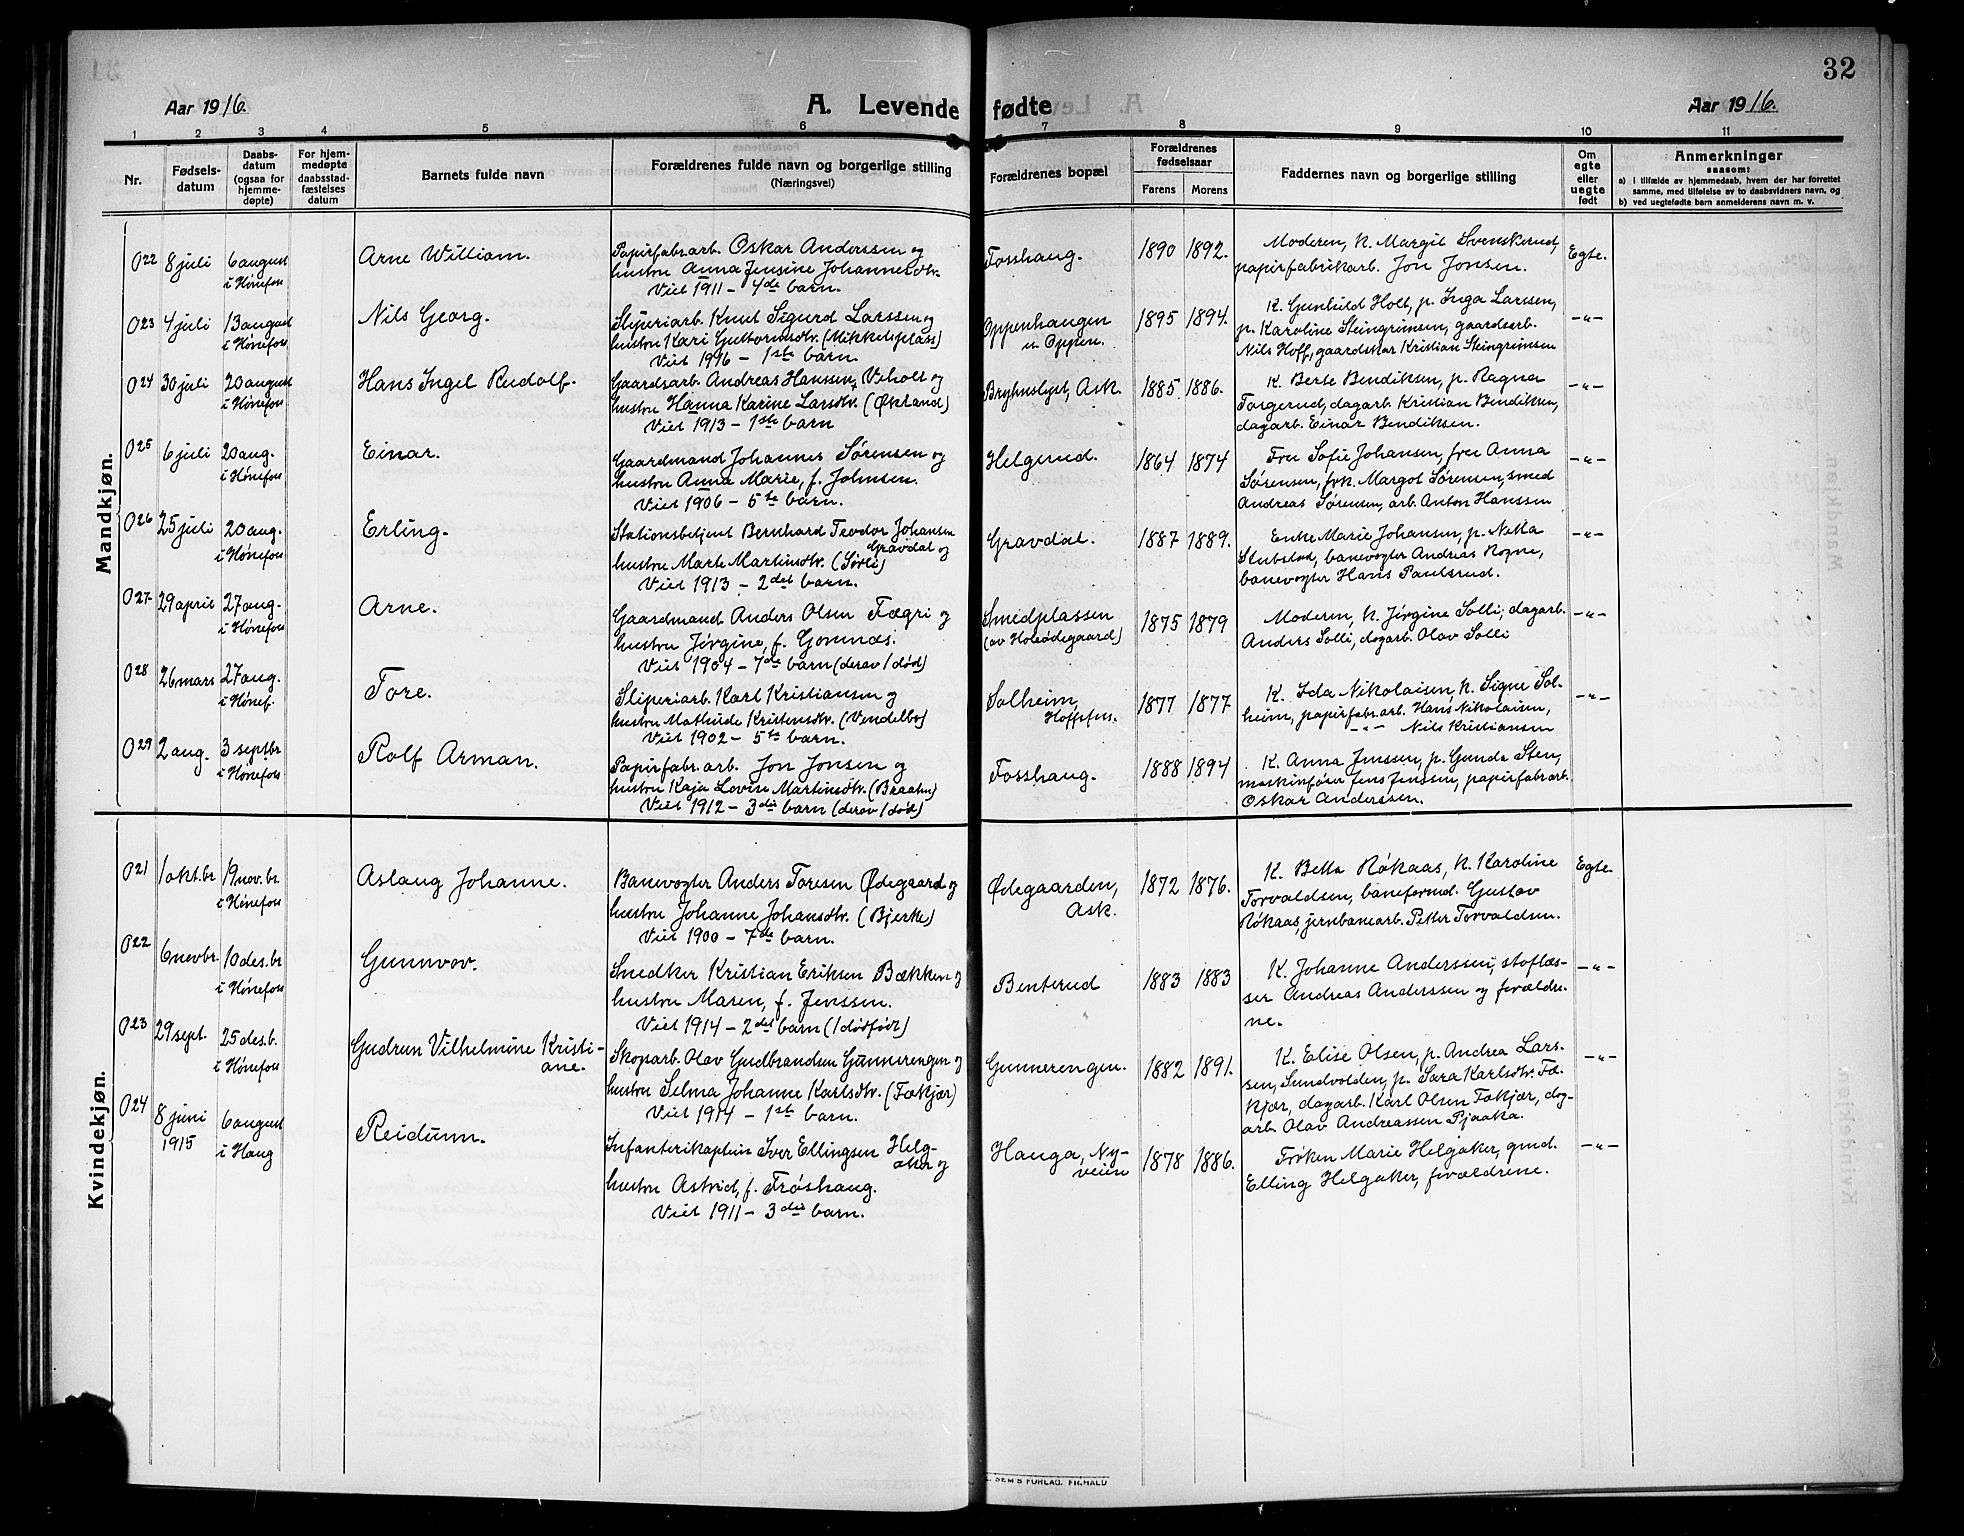 32
Aar 1916.
A. Levende fødte
Aar 1916.
1 2 3 4 5 6 7 8 9 10 11
Nr.
Fødsels-
datum
Daabs-
datum
(ogsaa for
hjemme-
døpte)
For hjem-
medøpte
daabsstad-
fæstelses
datum
Barnets fulde navn
Forældrenes fulde navn og borgerlige stilling
(Næringsvei)
Forældrenes bopæl
Forældrenes
fødselsaar
Farens Morens
Faddernes navn og borgerlige stilling
Om
egte
eller
uegte
født
Anmerkninger
saasom:
a) i tilfælde av hjemmedaab, hvem der har forrettet
samme, med tilføielse av to daabsvidners navn, og
b) ved uegtefødte barn anmelderens navn m. v.
Mandkjøn.
022 8 juli 6 august
i Hønefoss
Arne William.
Papirfabr.arb. Oskar Anderssen og
hustru Anna Jensine Johannesdtr.
Viet 1911 - 4de barn.
Fosshaug. 1890 1892.
Moderen, k. Margit Svenskerud,
papirfabrikarb. Jon Jonsen.
Egte.
023 4 juli 13 august
i Hønefoss
Nils Georg.
Sliperiarb. Knut Sigurd Larssen og
hustru Kari Guttormsdtr. (Mikkelsplass)
Viet 1916 - 1ste barn.
Oppenhaugen
u. Oppen.
1895 1894.
K. Gunhild Holt, p. Inga Larssen,
p. Karoline Steingrimsen, gaardsarb.
Nils Hoff, gaardskar Kristian Steingrimsen
-"-
024 30 juli 20 august
i Hønefoss
Hans Ingel Rudolf.
Gaardsarb. Andreas Hanssen, Veholt og
hustru Hanna Karine Larsdtr. (Økland)
Viet 1913 - 1ste barn
Bryhnslyst, Ask. 1885. 1886.
K. Berte Bendiksen, p. Ragna
Torgerud, dagarb. Kristian Bendiksen,
dagarb. Einar Bendiksen.
-"-
025 6 juli 20 aug.
i Hønefoss
Einar.
Gaardmand Johannes Sørensen og
hustru Anna Marie, f. Johnsen.
Viet 1906 - 5te barn.
Helgerud. 1864 1874
Fru Sofie Johansen, fru Anna
Sørensen, frk. Margot Sørensen, smed
Andreas Sørensen, arb. Anton Hanssen
-"-
026 25 juli 20 aug.
i Hønefoss
Erling.
Stationsbetjent Bernhard Teodor Johansen
Gravdal og
hustru Marte Martinsdtr. (Sørli)
Viet 1913 - 2det barn.
Gravdal. 1887 1889.
Enke Marie Johansen, p. Netta
Stubstad, banevogter Andreas Rogne,
banevogter Hans Paulsrud.
-"-
027 29 april 27 aug.
i Hønefoss
Arne.
Gaardmand Anders Olsen Fægri og
hustru Jørgine, f. Gomnæs.
Viet 1904 - 7de barn (derav 1 død)
Smedplassen
(av Holeødegaard)
1875 1879
Moderen, k. Jørgine Solli, dagarb.
Anders Solli, dagarb. Olav Solli
-"-
028 26 mars 27 aug.
i Hønef.
Tore.
Sliperiarb. Karl Kristiansen og
hustru Mathilde Kristensdtr. (Vendelbo)
Viet 1902 - 5te barn.
Solheim,
Hofsfoss.
1877 1877
K. Ida Nikolaisen, k. Signe Sol-
heim, papirfabr.arb. Hans Nikolaisen,
-"- Nils Kristiansen
-"-
029 2 aug. 3 septbr
i Hønefoss
Rolf Arman.
Papirfabr.arb. Jon Jonsen og
hustru Kaja Lovise Martinsdtr. (Braaten)
Viet 1912 - 3die barn (derav 1 død)
Fosshaug. 1888 1894
K. Anna Jenssen, p. Gunda Sten,
maskinfører Jens Jenssen, papirfabr.arb.
Oskar Anderssen.
Kvindekjøn.
021 1 okt.br 19 nov.br.
i Hønefoss
Aslaug Johanne.
Banevogter Anders Toresen Ødegaard og
hustru Johanne Johansdtr. (Bjerke)
Viet 1900 - 7de barn.
Ødegaarden,
Ask.
1872 1876.
K. Betta Røkaas, k. Karoline
Torvaldsen, baneformd. Gustav
Røkaas, jernbanearb. Petter Torvaldsen.
Egte.
022 6 novbr. 10 des.br
i Hønefoss
Gunnvor.
Snedker Kristian Eriksen Bækken og
hustru Maren, f. Jenssen.
Viet 1914 - 2det barn (1 dødfødt)
Benterud 1883 1883
K. Johanne Anderssen, stoflæs-
ser Andreas Anderssen og forældre-
ne.
-"-
023 29 sept. 25 des.b.
i Hønefoss
Gudrun Vilhelmine Kristi-
ane.
Skogarb. Olav Gudbrandsen Gunnerengen og
hustru Selma Johanne Karlsdtr. (Fækjær)
Viet 1914 - 1ste barn.
Gunnerengen. 1882 1891.
K. Elise Olsen, p. Andrea Lars-
sen, Sundvolden, p. Sara Karlsdtr. Fæ-
kjær, dagarb. Karl Olsen Fækjær, dag-
arb. Olav Andreassen Pjaaka.
-"-
024 8 juni
1915
6 august
i Haug
Reidunn.
Infanterikaptein Iver Ellingsen Helg-
aker og
hustru Astrid, f. Frøshaug.
Viet 1911 - 3die barn.
Hauga, Ny-
veien
1878 1886.
Frøken Marie Helgaker, grud.
Elling Helgaker, forældrene.
-"-
SEM'S FORLAG. FR.HALD